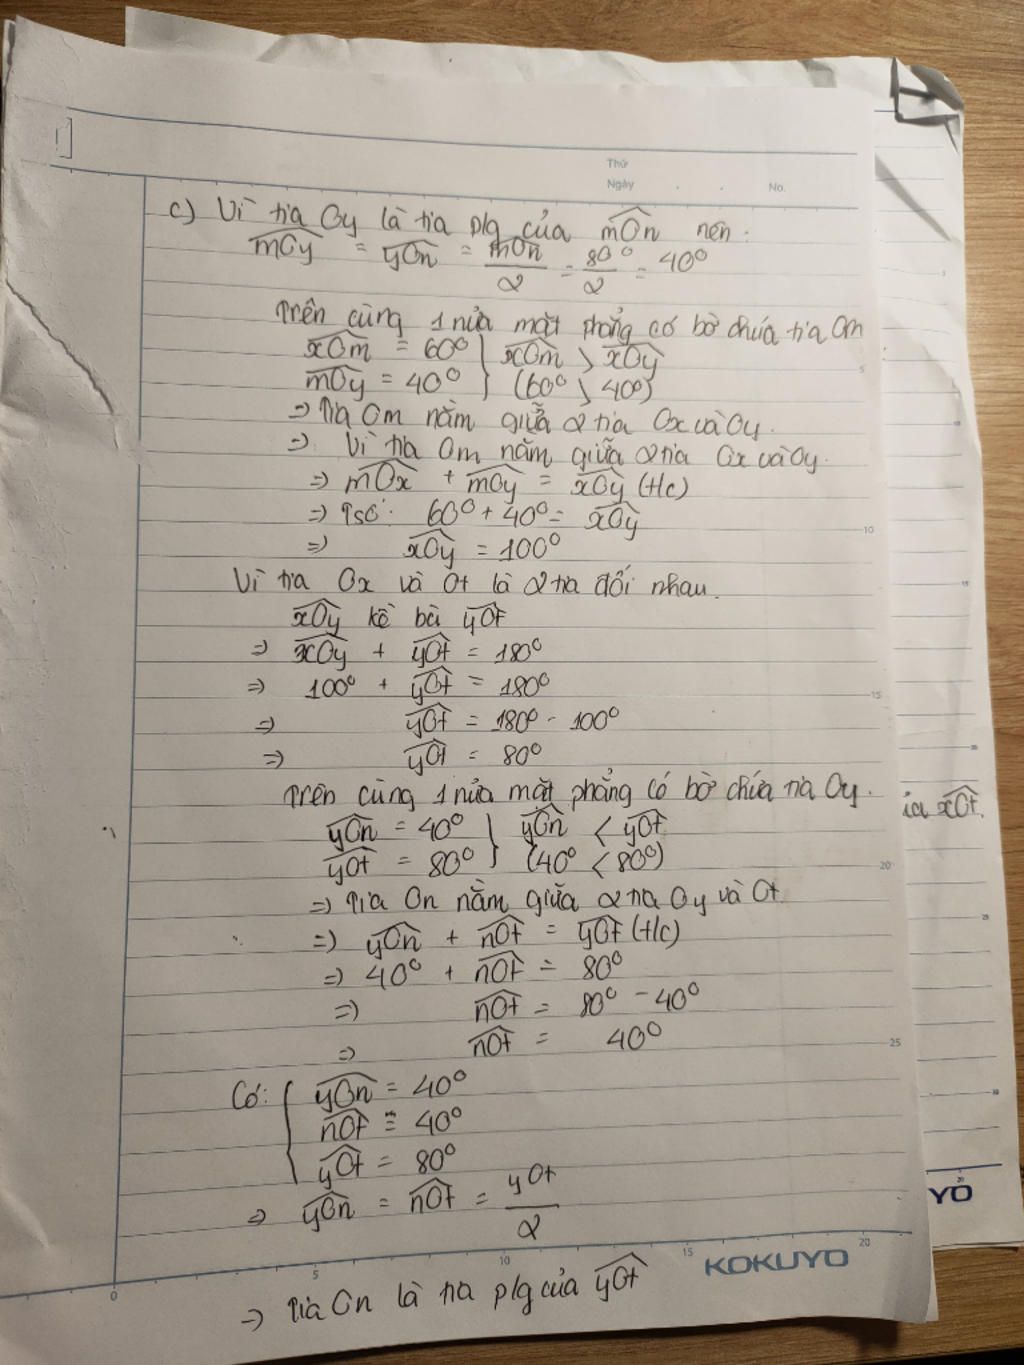 Thứ
Ngày . . No.
c) Vì tia Oy là tia plg của mOn nên:
mOy = yOn = mOn/2 = 80°/2 = 40°
Trên cùng 1 nửa mặt phẳng có bờ chứa tia Om
xOm = 60° } xOm > xOy
mOy = 40° } (60° > 40°)
=> Tia Om nằm giữa 2 tia Ox và Oy.
=> Vì tia Om nằm giữa 2 tia Ox và Oy.
=> mOx + mOy = xOy (t/c)
=> Tso: 60° + 40° = xOy
=> xOy = 100°
Vì tia Ox và Ot là 2 tia đối nhau.
xOy kề bù yOt
=> xOy + yOt = 180°
=> 100° + yOt = 180°
=> yOt = 180° - 100°
=> yOt = 80°
Trên cùng 1 nửa mặt phẳng có bờ chứa tia Oy.
ia xOt.
yOn = 40° } yOn < yOt
yOt = 80° } (40° < 80°)
=> Tia On nằm giữa 2 tia Oy và Ot.
=> yOn + nOt = yOt (t/c)
=> 40° + nOt = 80°
=> nOt = 80° - 40°
=> nOt = 40°
Có: { yOn = 40°
nOt = 40°
yOt = 80°
=> yOn = nOt = yOt/2
YO
0 5 10 15 20
KOKUYO
=> Tia On là tia plg của yOt